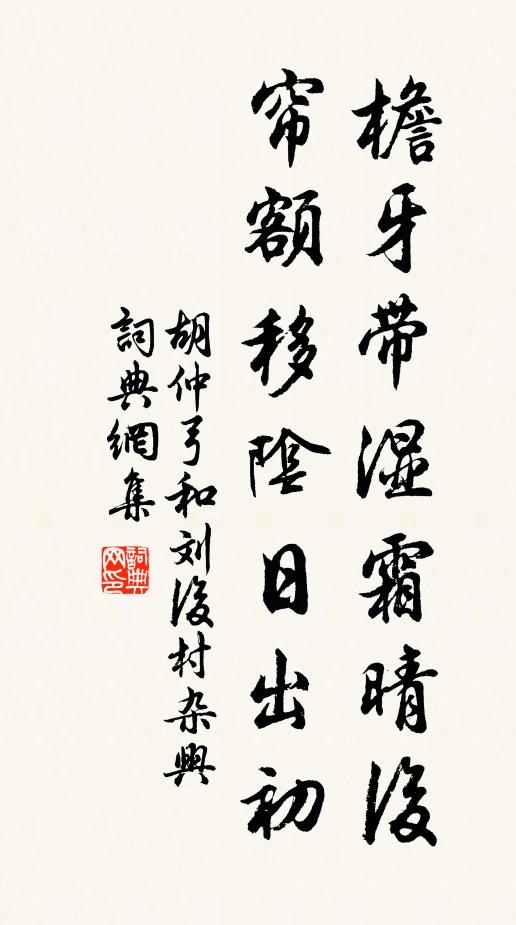 檐牙带湿霜晴後
帘额移陰日出初
胡仲弓和刘後村杂興
詞典網集
詞典网印